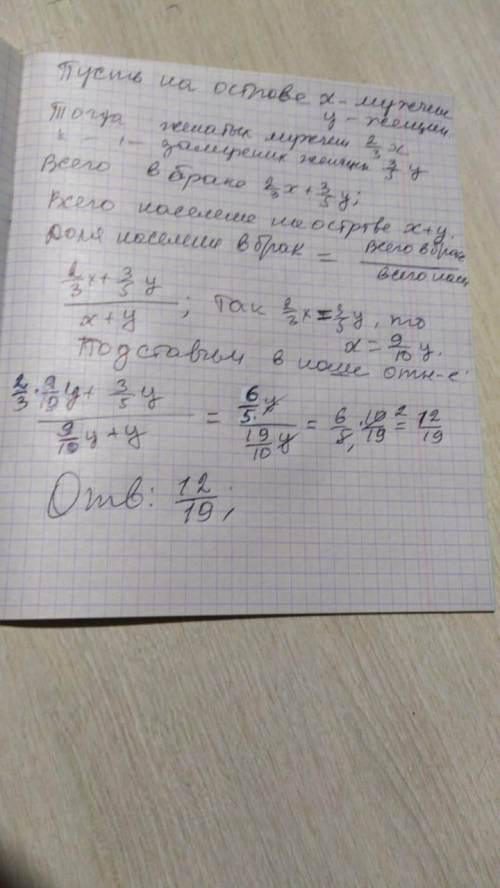 Пусть на острове x - мужчин
y - женщин
Тогда женатых мужчин 2/3 x
" — " — замужних женщин 3/5 y
Всего в браке 2/3 x + 3/5 y;
Всего населене на острве x+y.
Доля населене в брак = Всего в брак / всего насел
(2/3 x + 3/5 y) / (x + y) ; Так 2/3 x = 3/5 y, то
x = 9/10 y.
Подставим в наше отн-е:
(2/3 · 9/10 y + 3/5 y) / (9/10 y + y) = (6/5 y) / (19/10 y) = 6/5 · 10/19 2 = 12/19
Отв: 12/19;